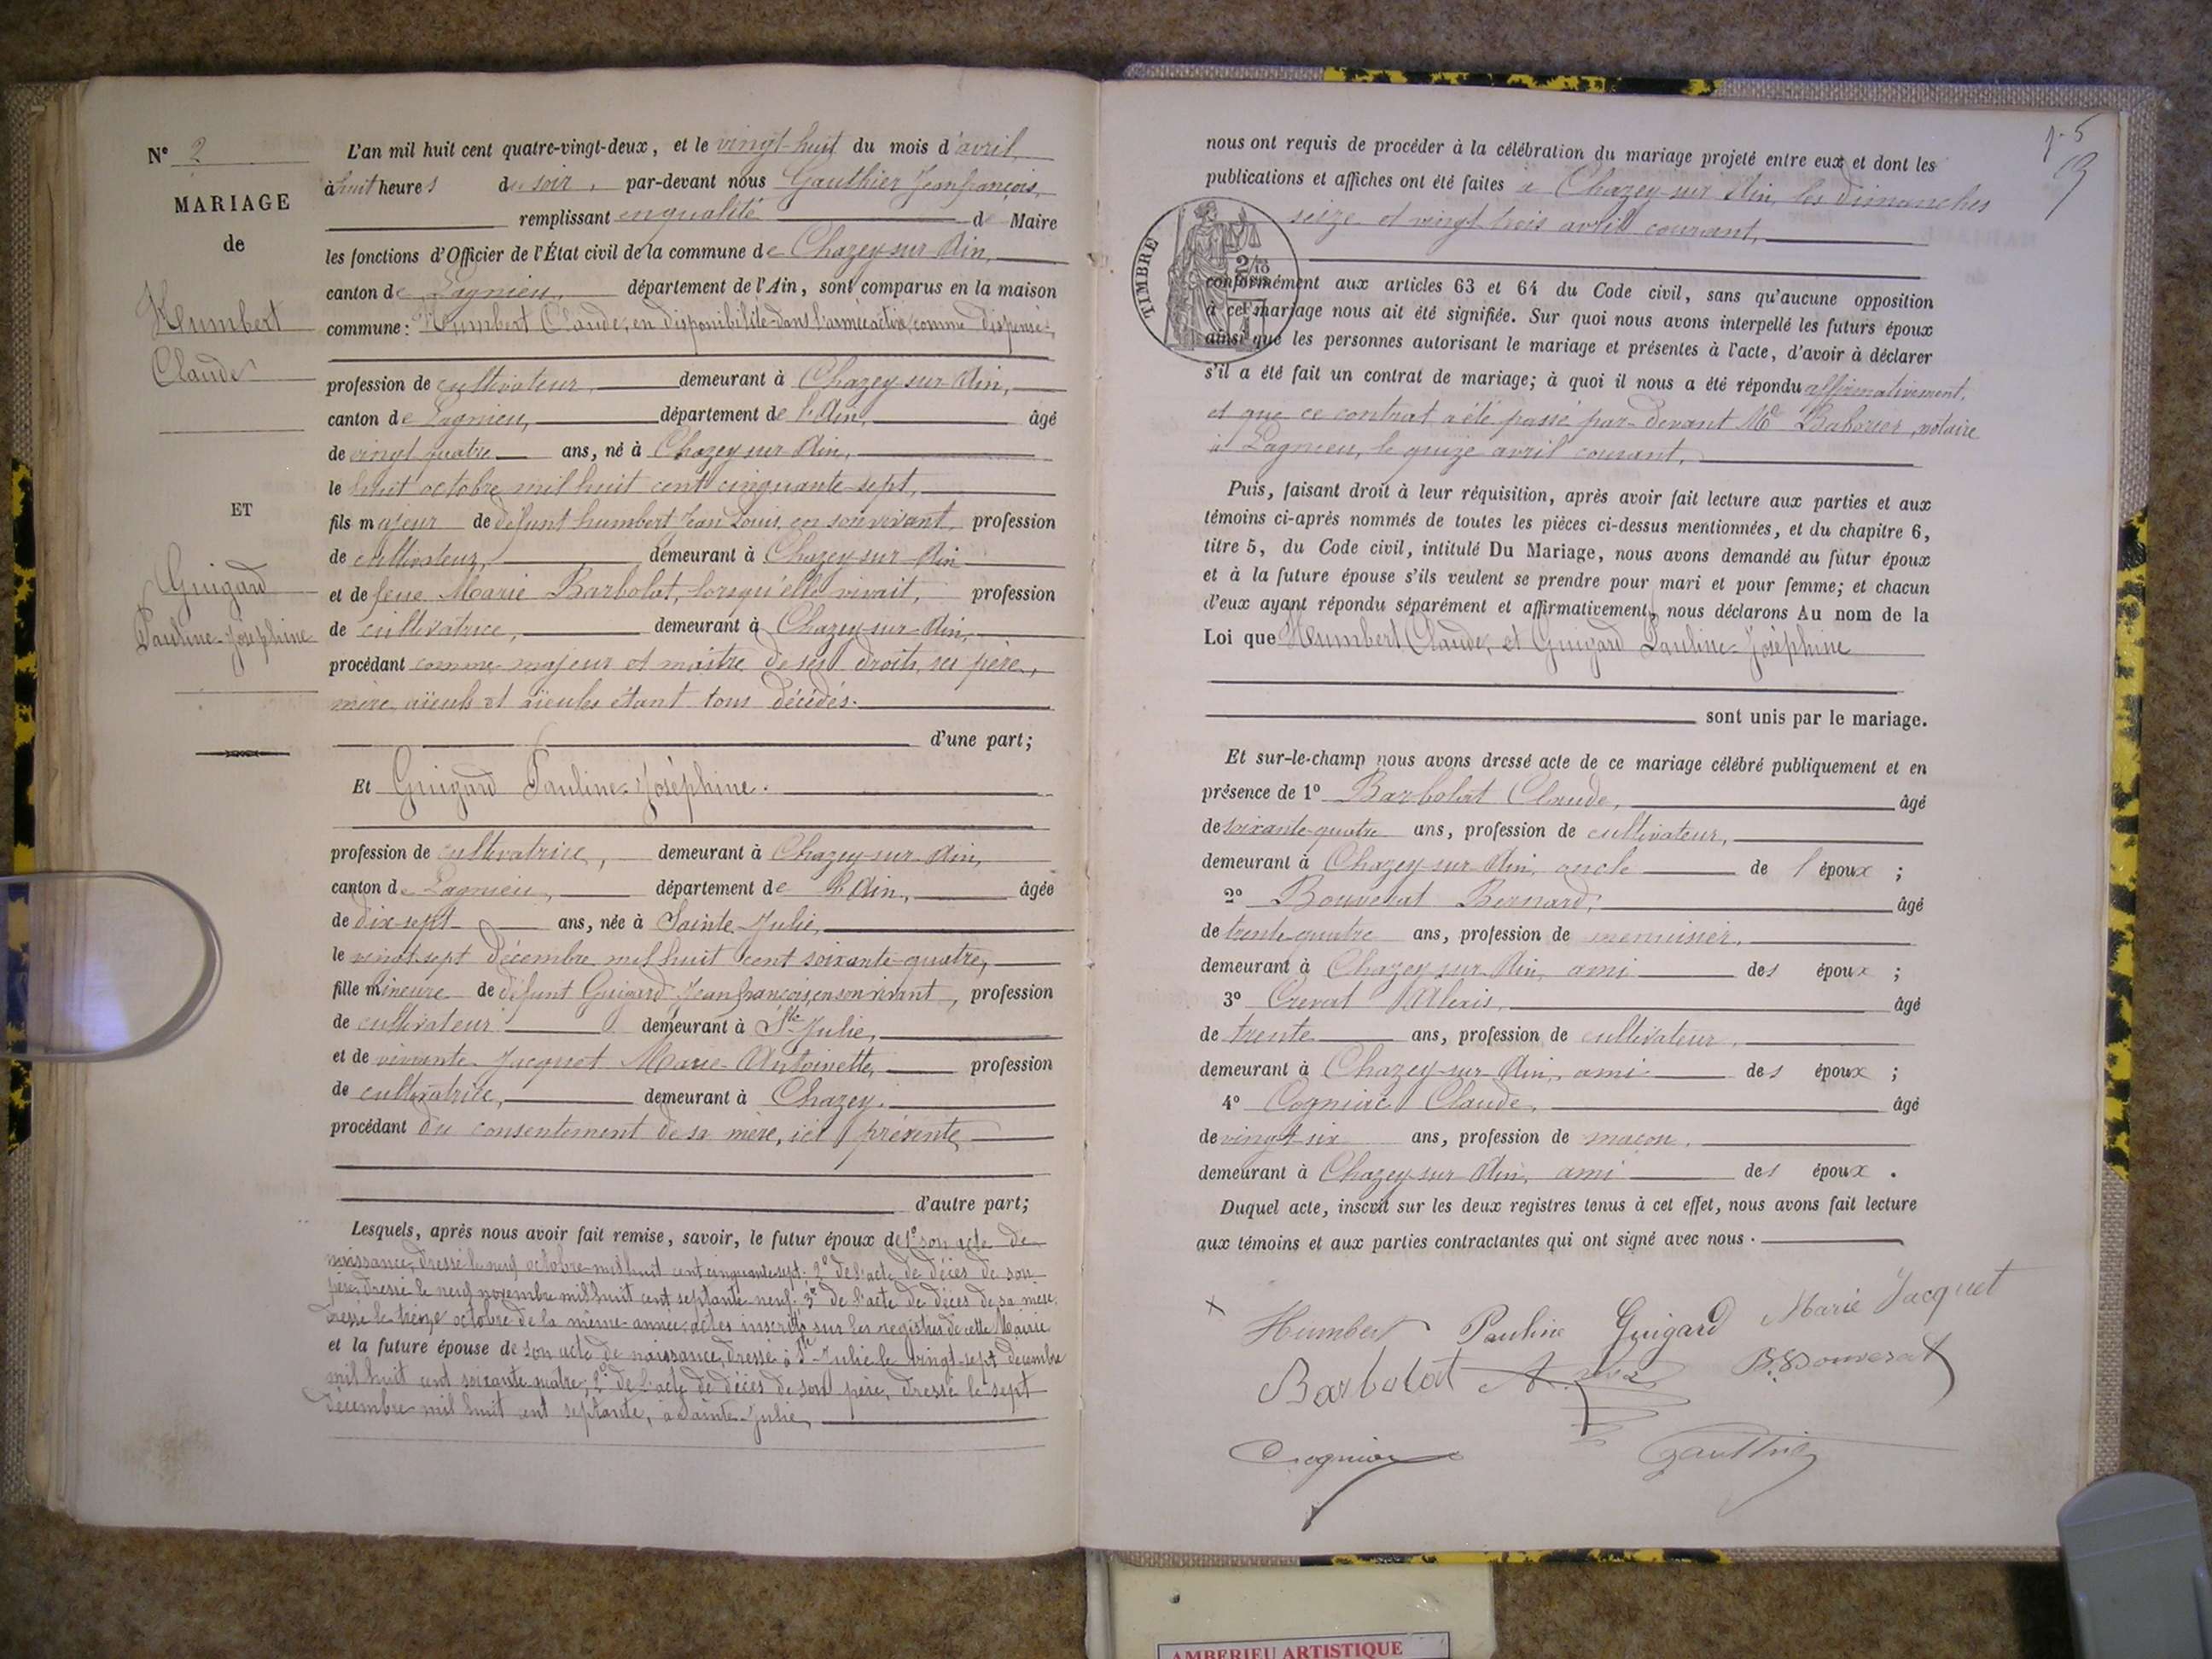 N° 2
MARIAGE
de
Humbert
Claude
ET
Guigard
Pauline-Joséphine
L'an mil huit cent quatre-vingt-deux, et le vingt-huit du mois d'avril,
à huit heures du soir, par-devant nous Gauthier Jean françois,
remplissant en qualité de Maire
les fonctions d'Officier de l'État civil de la commune de Chazey-sur-Ain,
canton de Lagnieu, département de l'Ain, sont comparus en la maison
commune: Humbert Claude, en disponibilité dans l'armée active comme dispensé,
profession de cultivateur, demeurant à Chazey-sur-Ain,
canton de Lagnieu, département de l'Ain, âgé
de vingt quatre ans, né à Chazey-sur-Ain,
le huit octobre mil huit cent cinquante-sept,
fils majeur de défunt humbert Jean Louis, en son vivant, profession
de cultivateur, demeurant à Chazey-sur-Ain
et de feue Marie Barbolat, lorsqu'elle vivait, profession
de cultivatrice, demeurant à Chazey-sur-Ain,
procédant comme majeur et maître de ses droits, ses père,
mère, aïeuls et aïeules étant tous décédés.
d'une part;
Et Guigard Pauline-Joséphine.
profession de cultivatrice, demeurant à Chazey-sur-Ain,
canton de Lagnieu, département de l'Ain, âgée
de dix-sept ans, née à Sainte-Julie,
le vingt-sept décembre mil huit cent soixante-quatre,
fille mineure de défunt Guigard Jean françois, en son vivant, profession
de cultivateur demeurant à Ste-Julie,
et de vivante Jacquet Marie-Antoinette, profession
de cultivatrice, demeurant à Chazey.
procédant du consentement de sa mère, ici présente
d'autre part;
Lesquels, après nous avoir fait remise, savoir, le futur époux de 1° son acte de
naissance, dressé le neuf octobre mil huit cent cinquante-sept. 2° de l'acte de décès de son
père, dressé le neuf novembre mil huit cent septante-neuf. 3° de l'acte de décès de sa mère,
dressé le treize octobre de la même année, actes inscrits sur les registres de cette Mairie
et la future épouse de son acte de naissance, dressé à Ste-Julie le vingt-sept décembre
mil huit cent soixante-quatre; 2° de l'acte de décès de son père, dressé le sept
décembre mil huit cent septante, à Sainte-Julie,
nous ont requis de procéder à la célébration du mariage projeté entre eux et dont les
publications et affiches ont été faites à Chazey-sur-Ain, les dimanches
seize et vingt trois avril courant,
TIMBRE
2/10
conformément aux articles 63 et 64 du Code civil, sans qu'aucune opposition
à cet mariage nous ait été signifiée. Sur quoi nous avons interpellé les futurs époux
ainsi que les personnes autorisant le mariage et présentes à l'acte, d'avoir à déclarer
s'il a été fait un contrat de mariage; à quoi il nous a été répondu affirmativement,
et que ce contrat a été passé par-devant Me notaire
à Lagnieu, le quize avril courant,
Puis, faisant droit à leur réquisition, après avoir fait lecture aux parties et aux
témoins ci-après nommés de toutes les pièces ci-dessus mentionnées, et du chapitre 6,
titre 5, du Code civil, intitulé Du Mariage, nous avons demandé au futur époux
et à la future épouse s'ils veulent se prendre pour mari et pour femme; et chacun
d'eux ayant répondu séparément et affirmativement, nous déclarons Au nom de la
Loi que Humbert Claude, et Guigard Pauline-Joséphine
sont unis par le mariage.
Et sur-le-champ nous avons dressé acte de ce mariage célébré publiquement et en
présence de 1° Barbolat Claude, âgé
de soixante-quatre ans, profession de cultivateur,
demeurant à Chazey-sur-Ain, oncle de l'époux ;
2° Bouverat Bernard, âgé
de trente-quatre ans, profession de menuisier,
demeurant à Chazey-sur-Ain, ami des époux ;
3° Crevat Alexis, âgé
de trente ans, profession de cultivateur,
demeurant à Chazey-sur-Ain, ami des époux ;
4° Cogniac Claude, âgé
de vingt-six ans, profession de maçon,
demeurant à Chazey-sur-Ain, ami des époux .
Duquel acte, inscrit sur les deux registres tenus à cet effet, nous avons fait lecture
aux témoins et aux parties contractantes qui ont signé avec nous .
Humbert Pauline Guigard Marie Jacquet
Barbolat B. Bouverat
Gauthier
AMBERIEU ARTISTIQUE